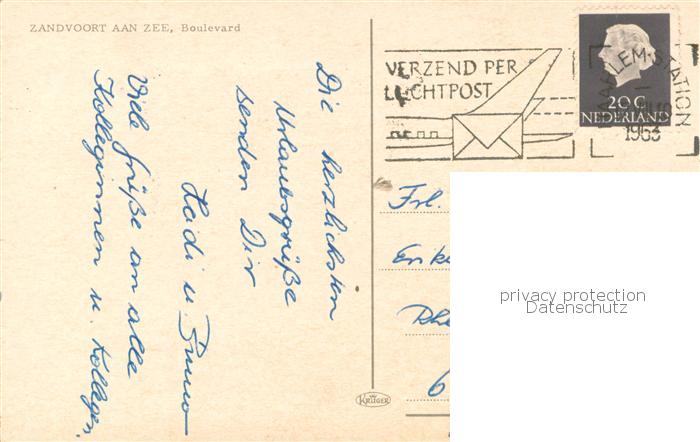 ZANDVOORT AAN ZEE, Boulevard
Die herzlichsten
Urlaubsgrüße
senden Dir
Heidi u. Bruno
Viele Grüße an alle
Kolleginnen u. Kollegen.
VERZEND PER
LUCHTPOST
HAARLEM-STATION
1963
20 C
NEDERLAND
Frl.
Erik
Rhe
6
KRÜGER
privacy protection
Datenschutz